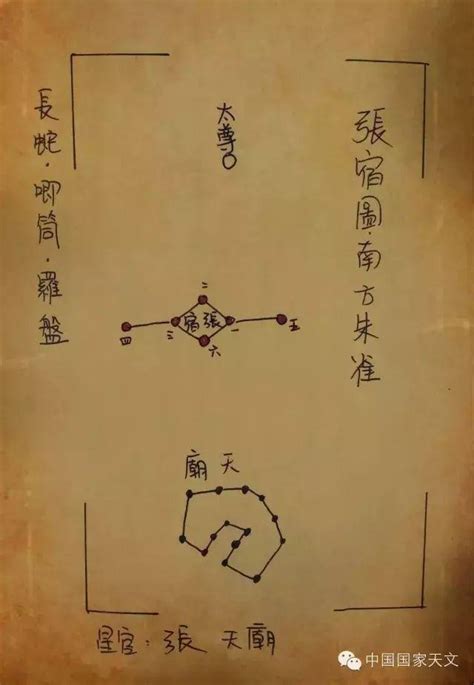 張宿圖·南方朱雀
太尊
長蛇·唧筒·羅盤
二
張宿
一
三
四
五
六
天廟
星官：張 天廟
中国国家天文